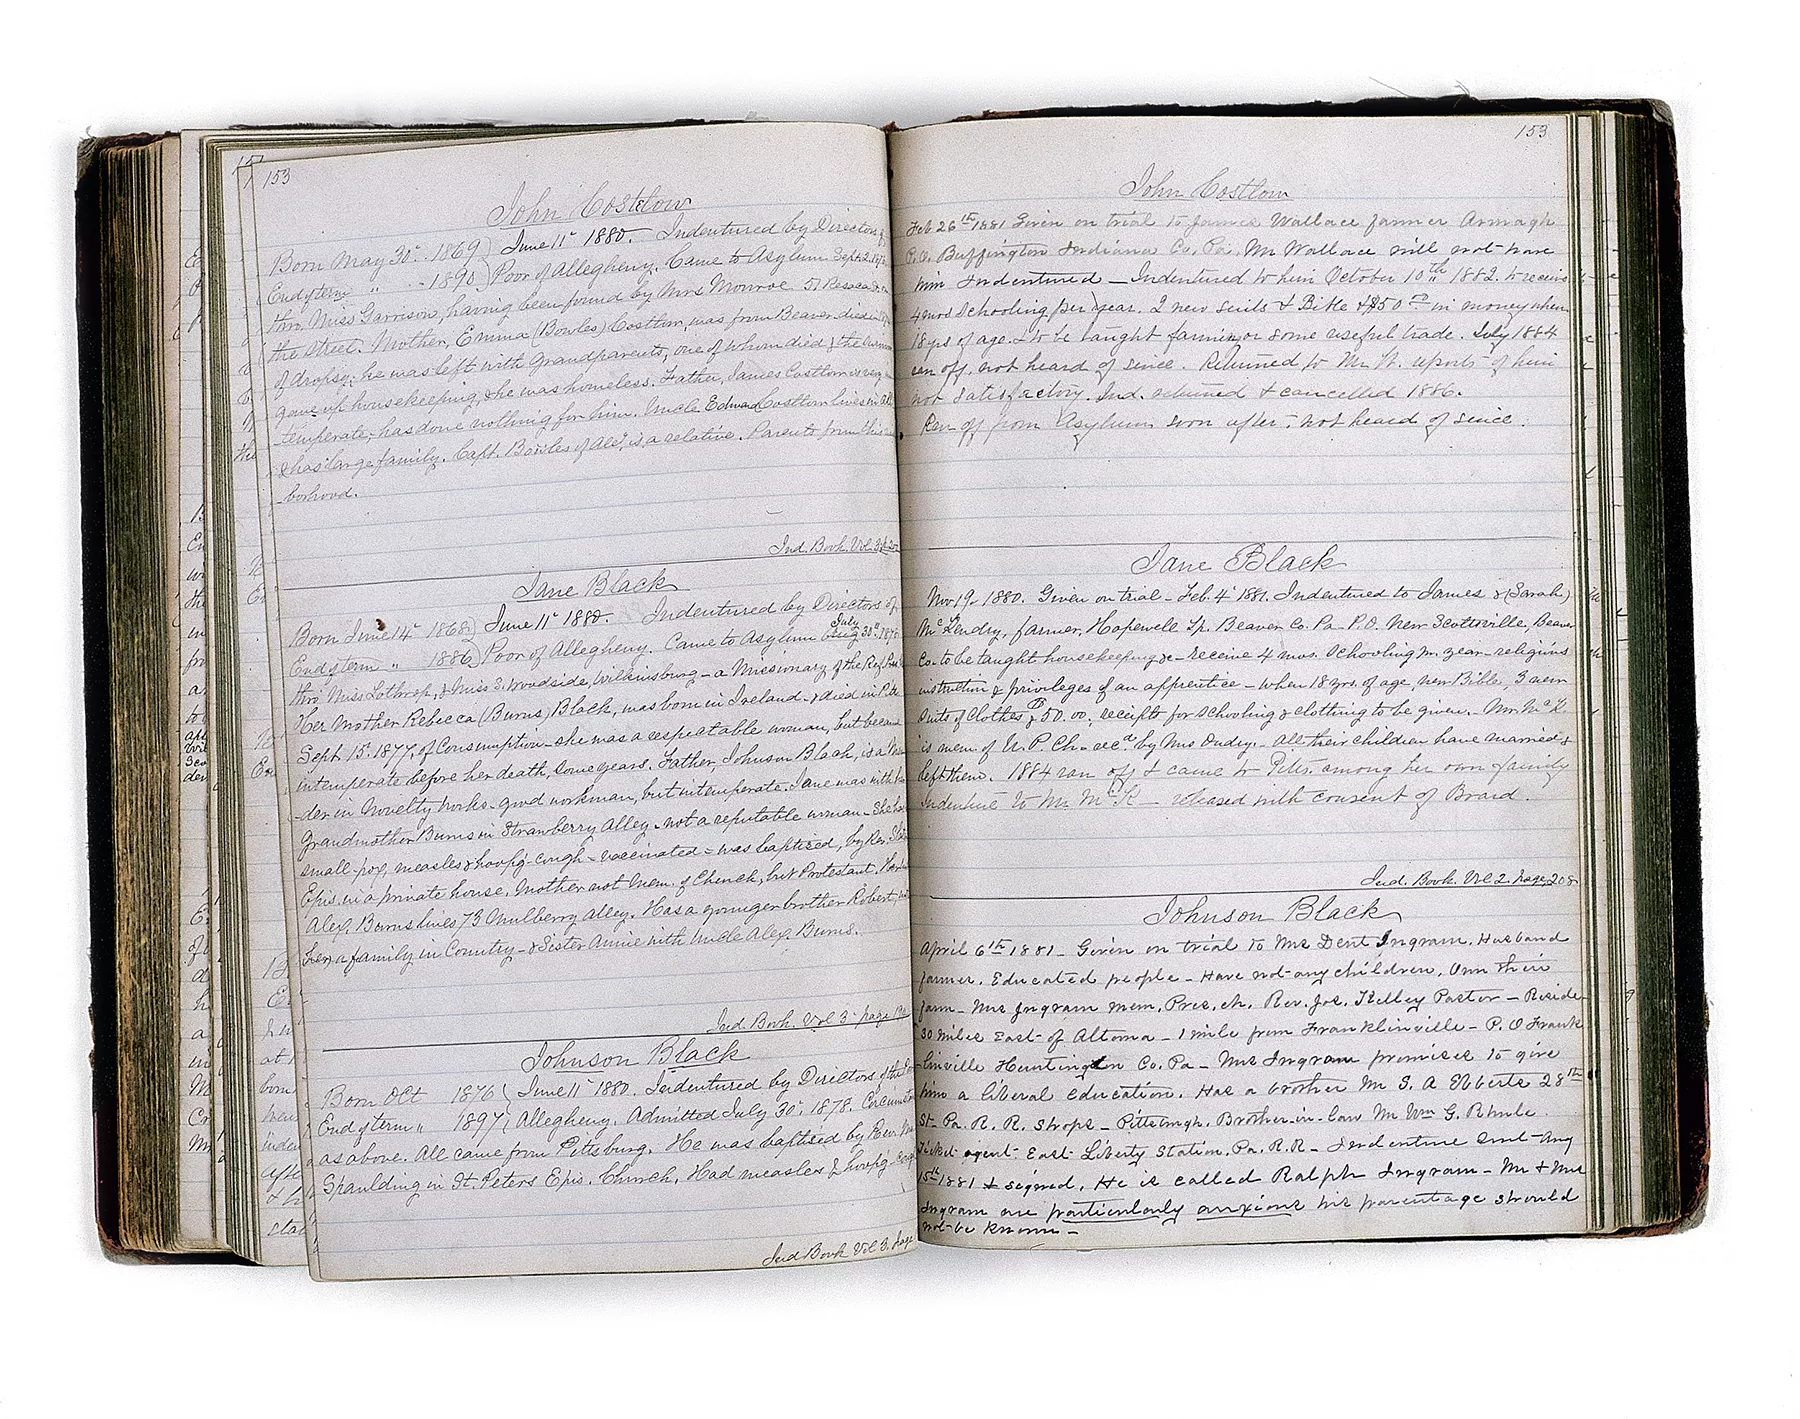 153
John Costlow
Born May 30" 1869) June 11" 1880. Indentured by Directors of
End of term " " 1890) Poor of Allegheny. Came to Asylum Sept. 2,
thro. Miss Garrison, having been found by Mrs Monroe 51 Resaca
the street. Mother, Emma (Bowles) Costlow, was from Beaver died
of dropsy; he was left with Grandparents, one of whom died & the
gave up housekeeping, & he was homeless. Father, James Costlow is very
temperate, has done nothing for him. Uncle Edward Costlow lives in
& has large family. Capt. Bowles of is a relative. Parents from this
borhood.
Ind. Book Vol 3
Jane Black
Born June 14" 1868) June 11" 1880. Indentured by Directors of
End of term " 1886) Poor of Allegheny. Came to Asylum July 30"
thro' Miss Lothrop, & Miss S. Woodside, Wilkinsburg - a Missionary of the Ref.
Her Mother Rebecca (Burns) Black, was born in Ireland - & died in
Sept. 15" 1877, of Consumption - she was a respectable woman, but became
intemperate before her death, some years. Father, Johnson Black, is a
der in Novelty Works - good workman, but intemperate. Jane was with
Grandmother Burns in Strawberry Alley - not a reputable woman - She had
small-pox, measles & hoop'g-cough - vaccinated - was baptized, by Rev.
Epis. in a private house. Mother not Mem. of Church, but Protestant.
Alex. Burns lives 73 Mulberry Alley. Has a younger brother Robert,
in a family in Country - & Sister Annie with Uncle Alex. Burns.
Ind. Book Vol 3 page
Johnson Black
Born Oct 1876 ( June 11" 1880. Indentured by Directors of the
End of term " 1897, Allegheny. Admitted July 30" 1878.
as above. All came from Pittsburg. He was baptized by Rev.
Spaulding in St. Peters Epis. Church. Had measles & hoop'g-
Ind Book Vol 3. page
153
John Costlow
Feb 26th 1881 Given on trial to James Wallace farmer Armagh
P.O. Buffington Indiana Co. Pa. Mr Wallace will not have
him Indentured - Indentured to him October 10th 1882. to receive
4 mos Schooling per year. 2 new suits & Bible & $50.00 in money when
18 yrs of age. & to be taught farming or some useful trade. July 1884
ran off, not heard of since. Returned to Mr. W. reports of him
not satisfactory. Ind. returned & cancelled 1886.
Ran off from Asylum soon after, not heard of since.
Jane Black
Nov 19 - 1880. Given on trial - Feb. 4" 1881. Indentured to James & (Sarah)
farmer, Hopewell Tp. Beaver Co. Pa. P.O. New Scottsville, Beaver
Co. to be taught housekeeping &c - receive 4 mos. Schooling pr. year - religious
instruction & privileges of an apprentice - when 18 yrs. of age, new Bible, 3 new
suits of clothes & 50.00, receipts for schooling & clothing to be given. - Mr. Mc K.
is mem. of U. P. Ch - rec'd by Mrs - All their children have married &
left them. 1884 ran off & came to Pitts. among her own family
Indenture to Mr. McK - released with consent of Board.
Ind. Book. Vol 2. page 208
Johnson Black
April 6th 1881 - Given on trial to Mrs Dent Ingram, Husband
farmer. Educated people - Have not any children. Own their
farm - Mrs Ingram mem. Pres. ch. Rev. Jos. Kelley Pastor - Reside
30 miles East of Altoona - 1 mile from Franklinville - P.O Frank
linville Huntingdon Co. Pa - Mrs Ingram promises to give
him a liberal education. Has a brother Mr S. A 28th
St. Pa. R. R. Shops - Pittsburgh. Brother-in-law Mr Wm G.
Ticket agent East Liberty Station. Pa. R.R - Indenture
15th 1881 & signed. He is called Ralph Ingram - Mr & Mrs
Ingram are particularly anxious his parentage should
not be known -